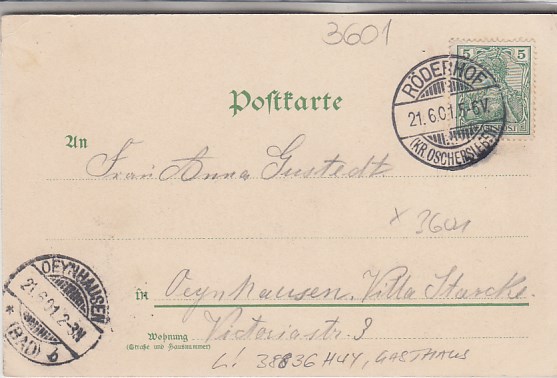 3601
5 5
RÖDERHOF
21.6.01.5-6V.
(KR. OSCHERSLEBEN)
Postkarte
An
Frau Anna Gustedt
x 3601
OEYNHAUSEN
21.6.01.2-3N
* (BAD) b
in
Oeynhausen, Villa Starcke
Wohnung
(Straße und Hausnummer)
Victoriastr.
L! 38836 HUY, GASTHAUS